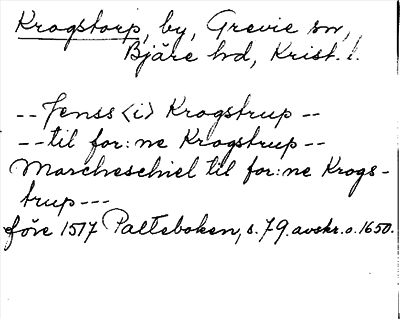 Krogstorp, by, Grevie sn,
Bjäre hd, Krist. l.
-- Jenss <i> Krogstrup --
-- til for:ne Krogstrup --
Marcheschiel til for:ne Krogs-
trup ---
före 1517 Palteboken, s. 79. avskr. o. 1650.